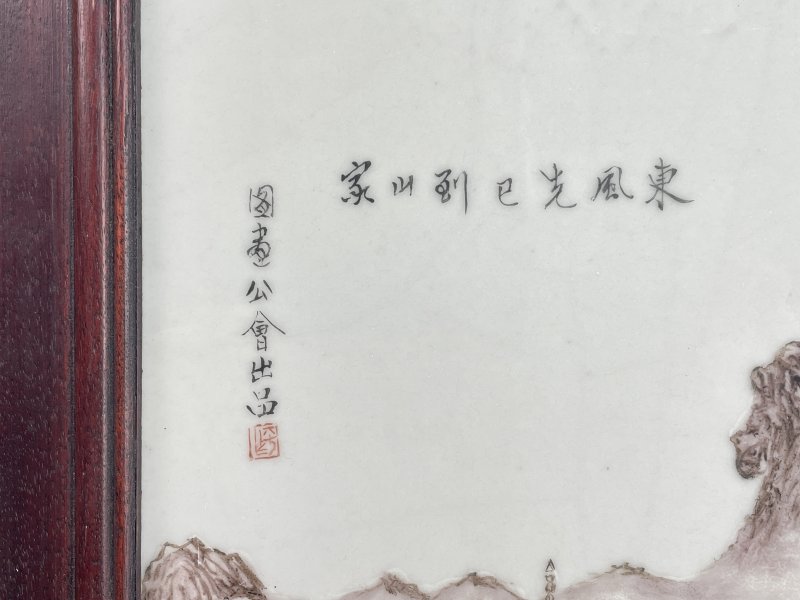 東風先已到山家
圖畫公會出品